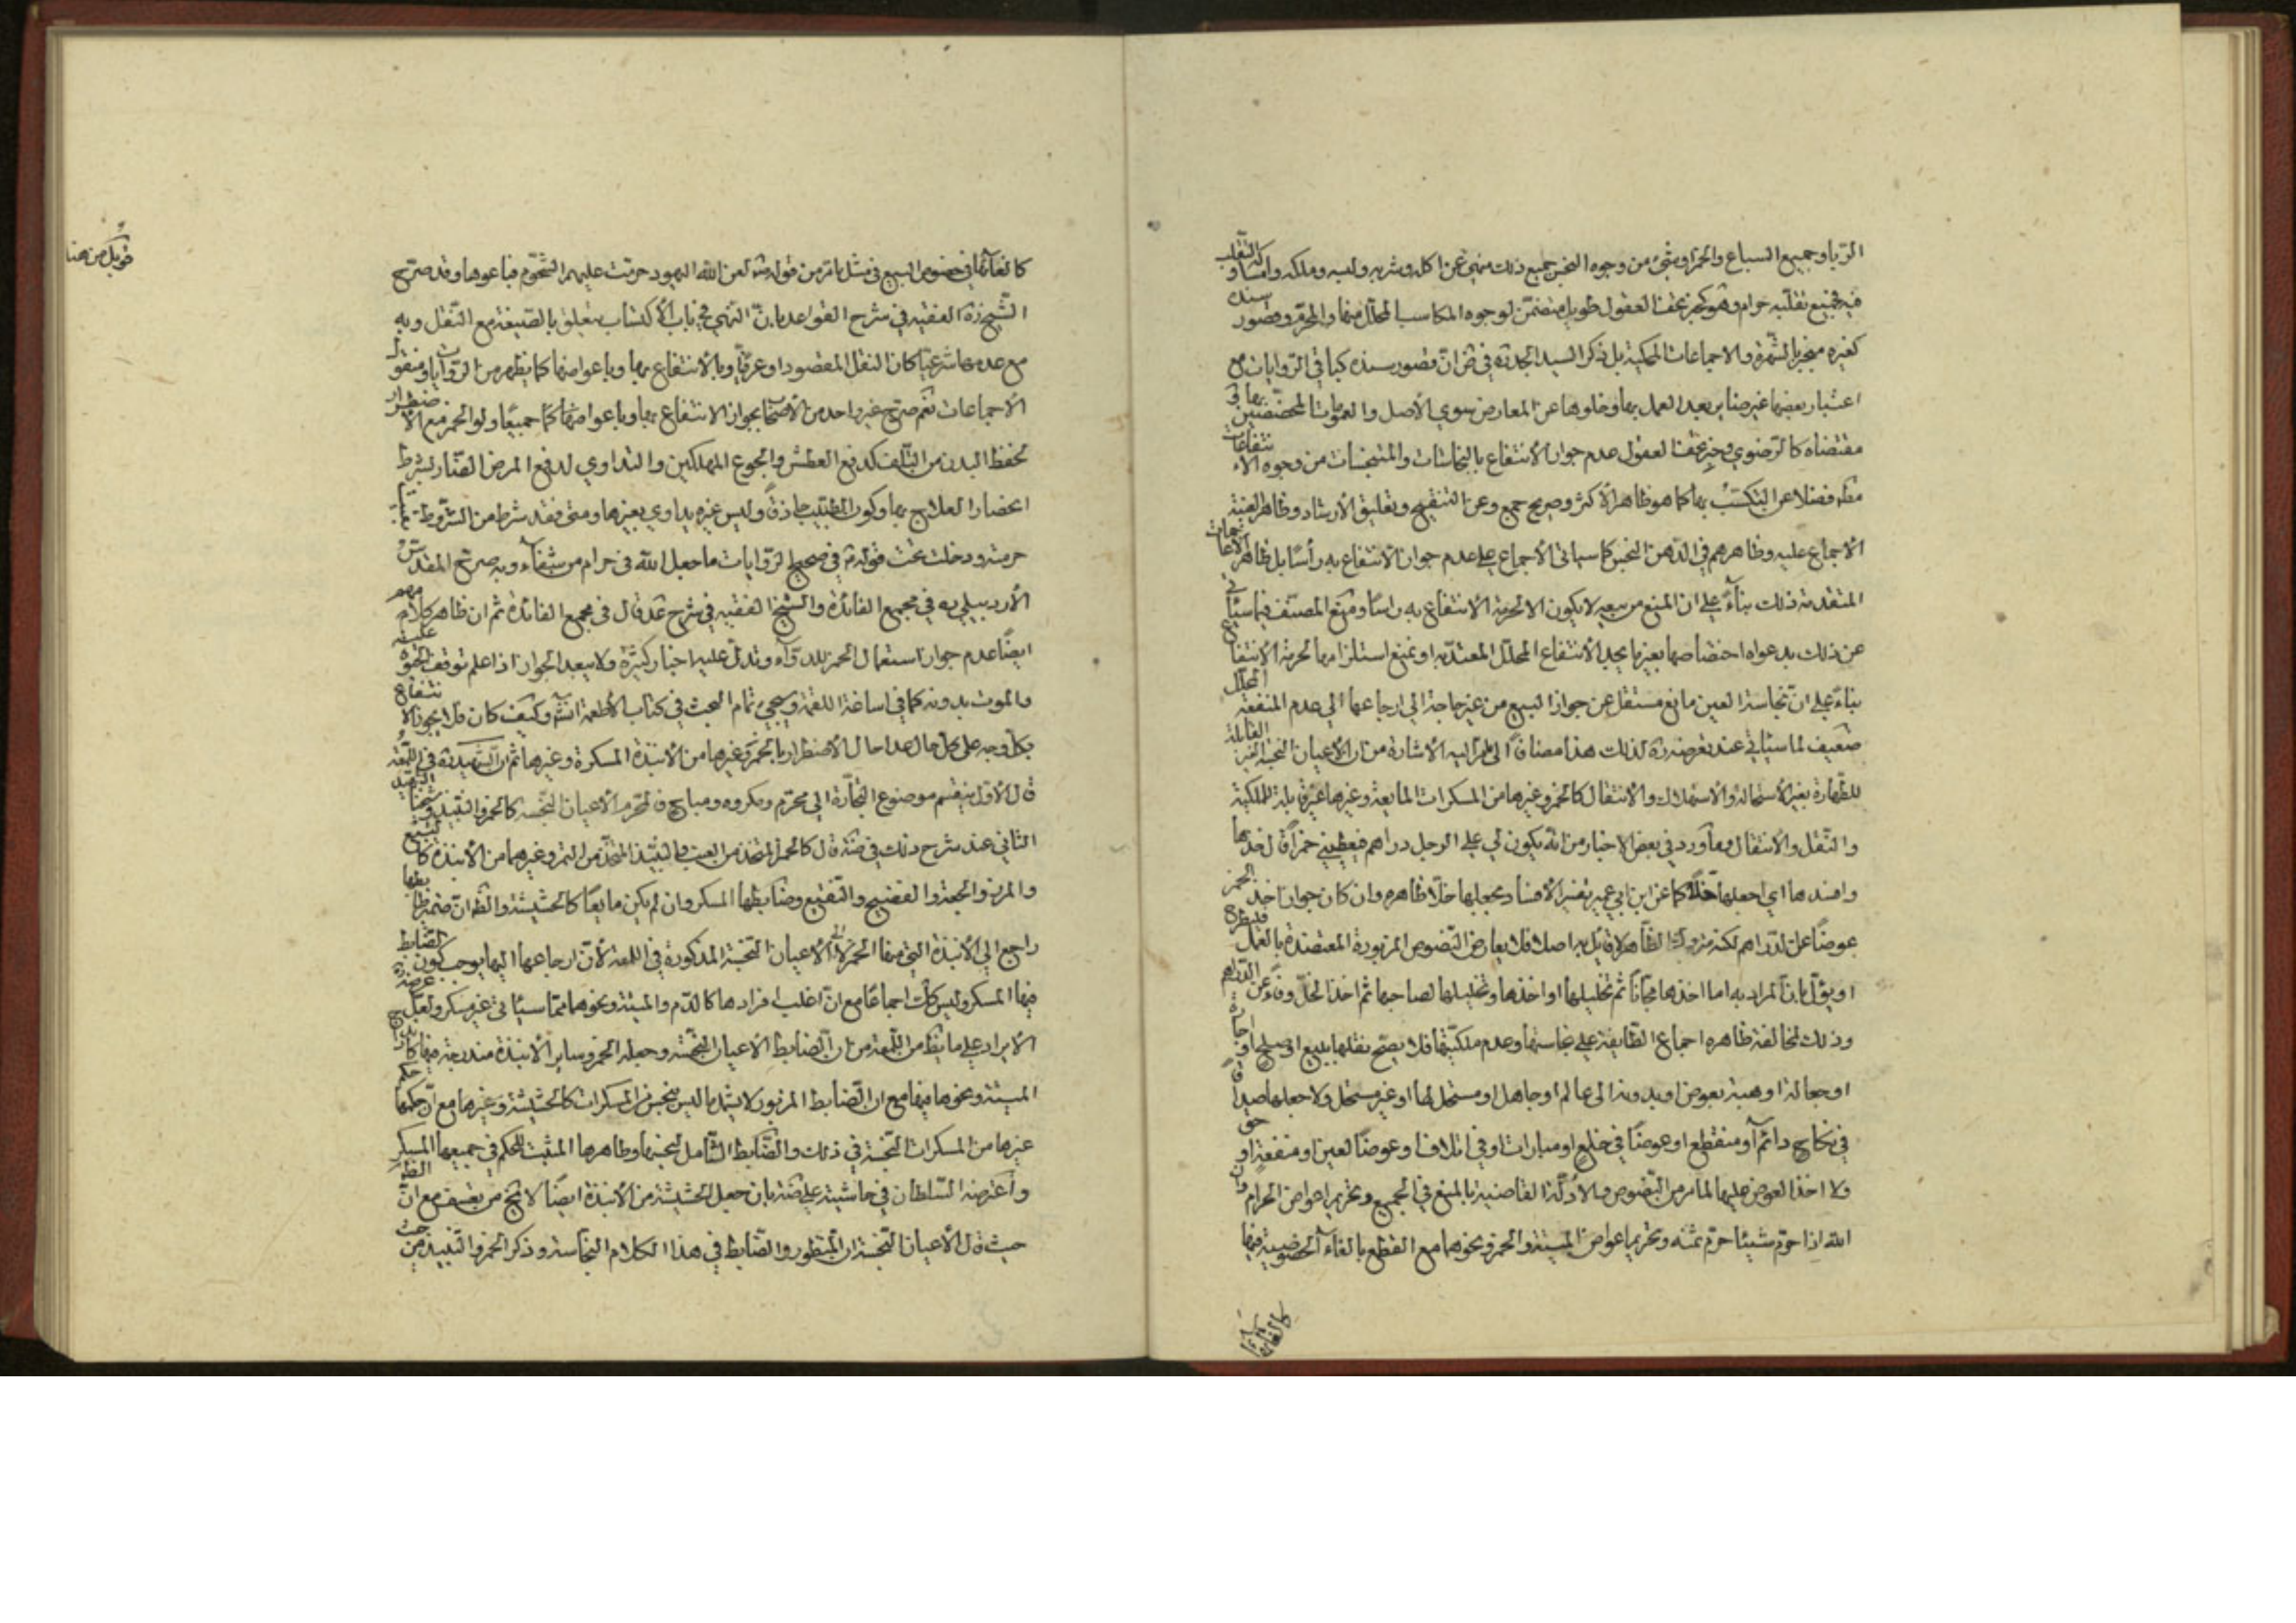 الربا وجميع السباع والخمر وشيء من وجوه النجس جميع ذلك منهي عن اكله وشربه ولبسه وملكه وامساكه والتقلب
فيه فجميع تقلبه حرام وهو كخبر تحف العقول طويل متضمن لوجوه المكاسب المحلل منها والمحرم وقصور سنده
كغيره منجبر بالشهرة والاجماعات المحكية بل ذكر السيد الجد في ان قصور سنده كباقي الروايات مع
اعتبار بعضها غير ضاير بعد العمل بها وخلوها عن المعارض سوى الأصل والعمومات المخصصين بها في
مقتضاه كالرضوي وخبر تحف العقول عدم جواز الأنتفاع بالنجاسات والمتنجسات من وجوه الأنتفاعات
مطلقا فضلا عن التكسب بها كما هو ظاهر الأكثر وصريح جمع وعن التنقيح وتعليق الأرشاد وظاهر الغنية
الأجماع عليه وظاهرهم في الدهن النجس كما سياتي الأجماع على عدم جواز الانتفاع به رأسا بل ظاهر الأجماعات
المتقدمة ذلك بناء على ان المنع من بيعه لا يكون الا لحرمة الانتفاع به راسا ومنع المصنف فيما سيأتي
عن ذلك بدعواه اختصاصها بغير ما يجد الأنتفاع المحلل المعتد به او بمنع استلزامها لحرمة الأنتفاع
بناء على ان نجاسة العين مانع مستقل عن جواز البيع من غير حاجة الى ارجاعها الى عدم المنفعة المحلل
ضعيف لما سيأتي عند تعرضه لذلك هذا مضافا الى ما مر اليه الأشارة من ان الأعيان النجسة الغير القابلة
للطهارة بغير الأستحالة والأستهلاك والأنتقال كالخمر وغيرها من المسكرات المايعة وغيرها غير قابلة للملكية
والنقل والأنتقال وما ورد في بعض الاخبار من انه يكون لي على الرجل دراهم فيعطيني خمرا قال خذها
وافسدها اي اجعلها خلا كما عن ابن ابي عمير بتفسير الأفساد بجعلها خلا ظاهره وان كان جواز اخذ الخمر
عوضا عن الدراهم لكنه متروك الظاهر لا قائل به اصلا فلا يعارض النصوص المزبورة المعتضدة بالعمل
او يؤل بان المراد به اما اخذها مجانا ثم تخليلها او اخذها وتخليلها لصاحبها ثم اخذ الخل وفاء عن الدراهم
وذلك لمخالفة ظاهره اجماع الطايفة على نجاستها وعدم ملكيتها فلا يصح نقلها ببيع او صلح او اجارة
او جعالة او هبة بعوض او بدونه الى عالم او جاهل او مستحل لها او غير مستحل ولا جعلها صداقا
في نكاح دائم او منقطع او عوضا في خلع او مبارات او في اتلاف او عوضا لعين او منفعة او حق
ولا اخذ العوض عليها لما مر من النصوص والأدلة القاضية بالمنع في الجميع وتحريم اعواض الحرام وان
الله اذا حرم شيئا حرم ثمنه وتحريم اعواض الميتة والخمر ونحوهما مع القطع بالغاء الخصوصية فيها
كالغائها
قوبل من هنا
كالغائها في خصوص البيع في مثل ما مر من قوله لعن الله اليهود حرمت عليهم الشحوم فباعوها وقد صرح
الشيخ الفقيه في شرح القواعد بان النهي في باب الأكتساب يتعلق بالصيغة مع النقل وبه
مع عدمها شرعيا كان النقل المقصود او عرفيا وبالانتفاع بها وباعواضها كما يظهر من الروايات ومنقول
الأجماعات نعم صرح غير واحد من الأصحاب بجواز الانتفاع بها وباعواضها كما جميعا ولو الخمر مع الأضطرار
لحفظ البدن من التلف كدفع العطش والجوع المهلكين والتداوي لدفع المرض الضار بشرط
انحصار العلاج بها وكون الطبيب حاذقا وليس غيره يداوي بغيرها ومتى فقد شرط من الشروط
حرمت ودخلت تحت قوله في صحيح الروايات ما جعل الله في حرام من شفاء وبه صرح المقدس
الأردبيلي في مجمع الفائدة والشيخ الفقيه في شرح عد قال في مجمع الفائدة ثم ان ظاهر كلامهم
ايضا عدم جواز استعمال الخمر للدواء وتدل عليه اخبار كثيرة ولا يبعد الجواز اذا علم توقف الحيوة عليه
والموت بدونه كما في اساغة اللقمة وسيجيء تمام البحث في كتاب الأطعمة انشاء وكيف كان فلا يجوز الأنتفاع
بكل وجه على كل حال عدا حال الأضطرار بالخمر وغيرها من الأنبذة المسكرة وغيرها ثم ان الشهيد في اللمعة
قال الأول ينقسم موضوع التجارة الى محرم ومكروه ومباح فالمحرم الأعيان النجسة كالخمر والنبيذ وشيخنا الشهيد
الثاني عند شرح ذلك في ضه قال كالخمر المتخذ من العنب والنبيذ المتخذ من التمر وغيرهما من الأنبذة كالبتع
والمزر والجعة والفضيخ والنقيع وضابطها المسكر وان لم يكن مايعا كالحشيشة والظ ان ضمير ضابطها
راجع الى الأنبذة التي منها الخمر لا الى الأعيان النجسة المذكورة في اللمعة لأن ارجاعها اليها يوجب كون الضابط
فيها المسكر وليس كك اجماعا مع ان اغلب افرادها كالدم والميتة ونحوهما مما سيأتي غير مسكر ولعل غرضه
الأيراد على ما يظهر من اللمعة من ان الضابط الأعيان النجسة وجعله الخمر وساير الأنبذة مندرجة فيها
الميتة ونحوها فيها مع ان الضابط المزبور لا يشمل ما ليس بنجس من المسكرات كالحشيشة وغيرها مع ان حكمها حكم
غيرها من المسكرات النجسة في ذلك والضابط الشامل لنجسها وطاهرها المثبت للحكم في جميعها المسكر
واعترضه السلطان في حاشيته على ضه بان جعل الحشيشة من الأنبذة ايضا لا يخ من تعسف مع ان الظ
حيث قال الأعيان النجسة ان المنظور والضابط في هذا الكلام النجاسة وذكر الخمر والنبيذ من